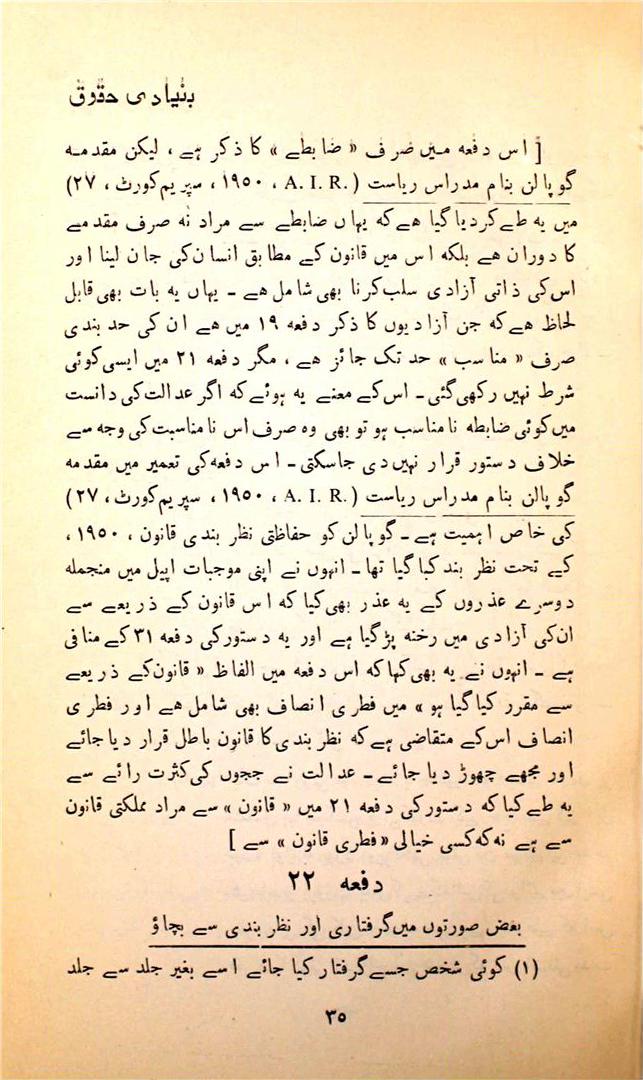 بنیادی حقوق
[ اس دفعہ میں صرف « ضابطے » کا ذکر ہے ، لیکن مقدمہ
گوپالن بنام مدراس ریاست ( .A. I. R ، ۱۹۵۰ ، سپریم کورٹ ، ۲۷)
میں یہ طے کردیا گیا ہے کہ یہاں ضابطے سے مراد نہ صرف مقدمے
کا دوران ہے بلکہ اس میں قانون کے مطابق انسان کی جان لینا اور
اس کی ذاتی آزادی سلب کرنا بھی شامل ہے ۔ یہاں یہ بات بھی قابل
لحاظ ہے کہ جن آزادیوں کا ذکر دفعہ ۱۹ میں ہے ان کی حد بندی
صرف « مناسب » حد تک جائز ہے ، مگر دفعہ ۲۱ میں ایسی کوئی
شرط نہیں رکھی گئی ۔ اس کے معنے یہ ہوئے کہ اگر عدالت کی دانست
میں کوئی ضابطہ نامناسب ہو تو بھی وہ صرف اس نامناسبت کی وجہ سے
خلاف دستور قرار نہیں دی جاسکتی ۔ اس دفعہ کی تعمیر میں مقدمہ
گوپالن بنام مدراس ریاست ( .A. I. R ، ۱۹۵۰ ، سپریم کورٹ ، ۲۷)
کی خاص اہمیت ہے ۔ گوپالن کو حفاظتی نظر بندی قانون ، ۱۹۵۰ ،
کے تحت نظر بند کیا گیا تھا ۔ انہوں نے اپنی موجبات اپیل میں منجملہ
دوسرے عذروں کے یہ عذر بھی کیا کہ اس قانون کے ذریعے سے
ان کی آزادی میں رخنہ پڑ گیا ہے اور یہ دستور کی دفعہ ۳۱ کے منافی
ہے ۔ انہوں نے یہ بھی کہا کہ اس دفعہ میں الفاظ « قانون کے ذریعے
سے مقرر کیا گیا ہو » میں فطری انصاف بھی شامل ہے اور فطری
انصاف اس کے متقاضی ہے کہ نظر بندی کا قانون باطل قرار دیا جائے
اور مجھے چھوڑ دیا جائے ۔ عدالت نے ججوں کی کثرت رائے سے
یہ طے کیا کہ دستور کی دفعہ ۲۱ میں « قانون » سے مراد مملکتی قانون
سے ہے نہ کہ کسی خیالی « فطری قانون » سے ]
دفعہ ۲۲
بعض صورتوں میں گرفتاری اور نظر بندی سے بچاؤ
(۱) کوئی شخص جسے گرفتار کیا جائے اسے بغیر جلد سے جلد
۳۵